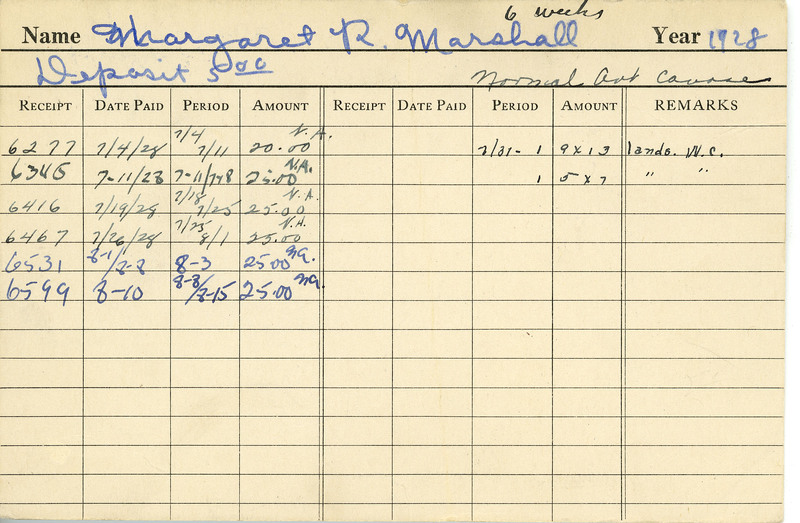 6 weeks
Name Margaret R. Marshall Year 1928
Deposit 5 00 Normal Art Course
RECEIPT DATE PAID PERIOD AMOUNT RECEIPT DATE PAID PERIOD AMOUNT REMARKS
6277 7/4/28 7/4 7/11 20.00 N.A. 7/31- 1 9x13 lands. W.C.
6345 7-11/28 7-11/7-18 25.00 N.A. 1 5x7 " "
6416 7/19/28 7/18 7/25 25.00 N.A.
6467 7/26/28 7/25 8/1 25.00 N.A.
6531 8-1/8-8 8-3 25.00 N.A.
6599 8-10 8-8/8-15 25.00 N.A.